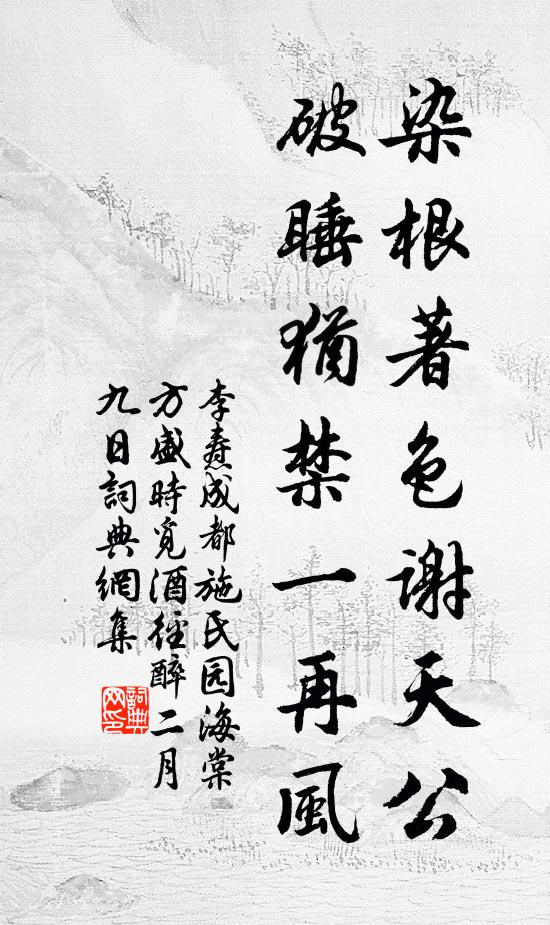 染根著色谢天公
破睡猶禁一再風
李焘成都施氏园海棠
方盛時覓酒径醉二月
九日詞典網集
詞典
网印